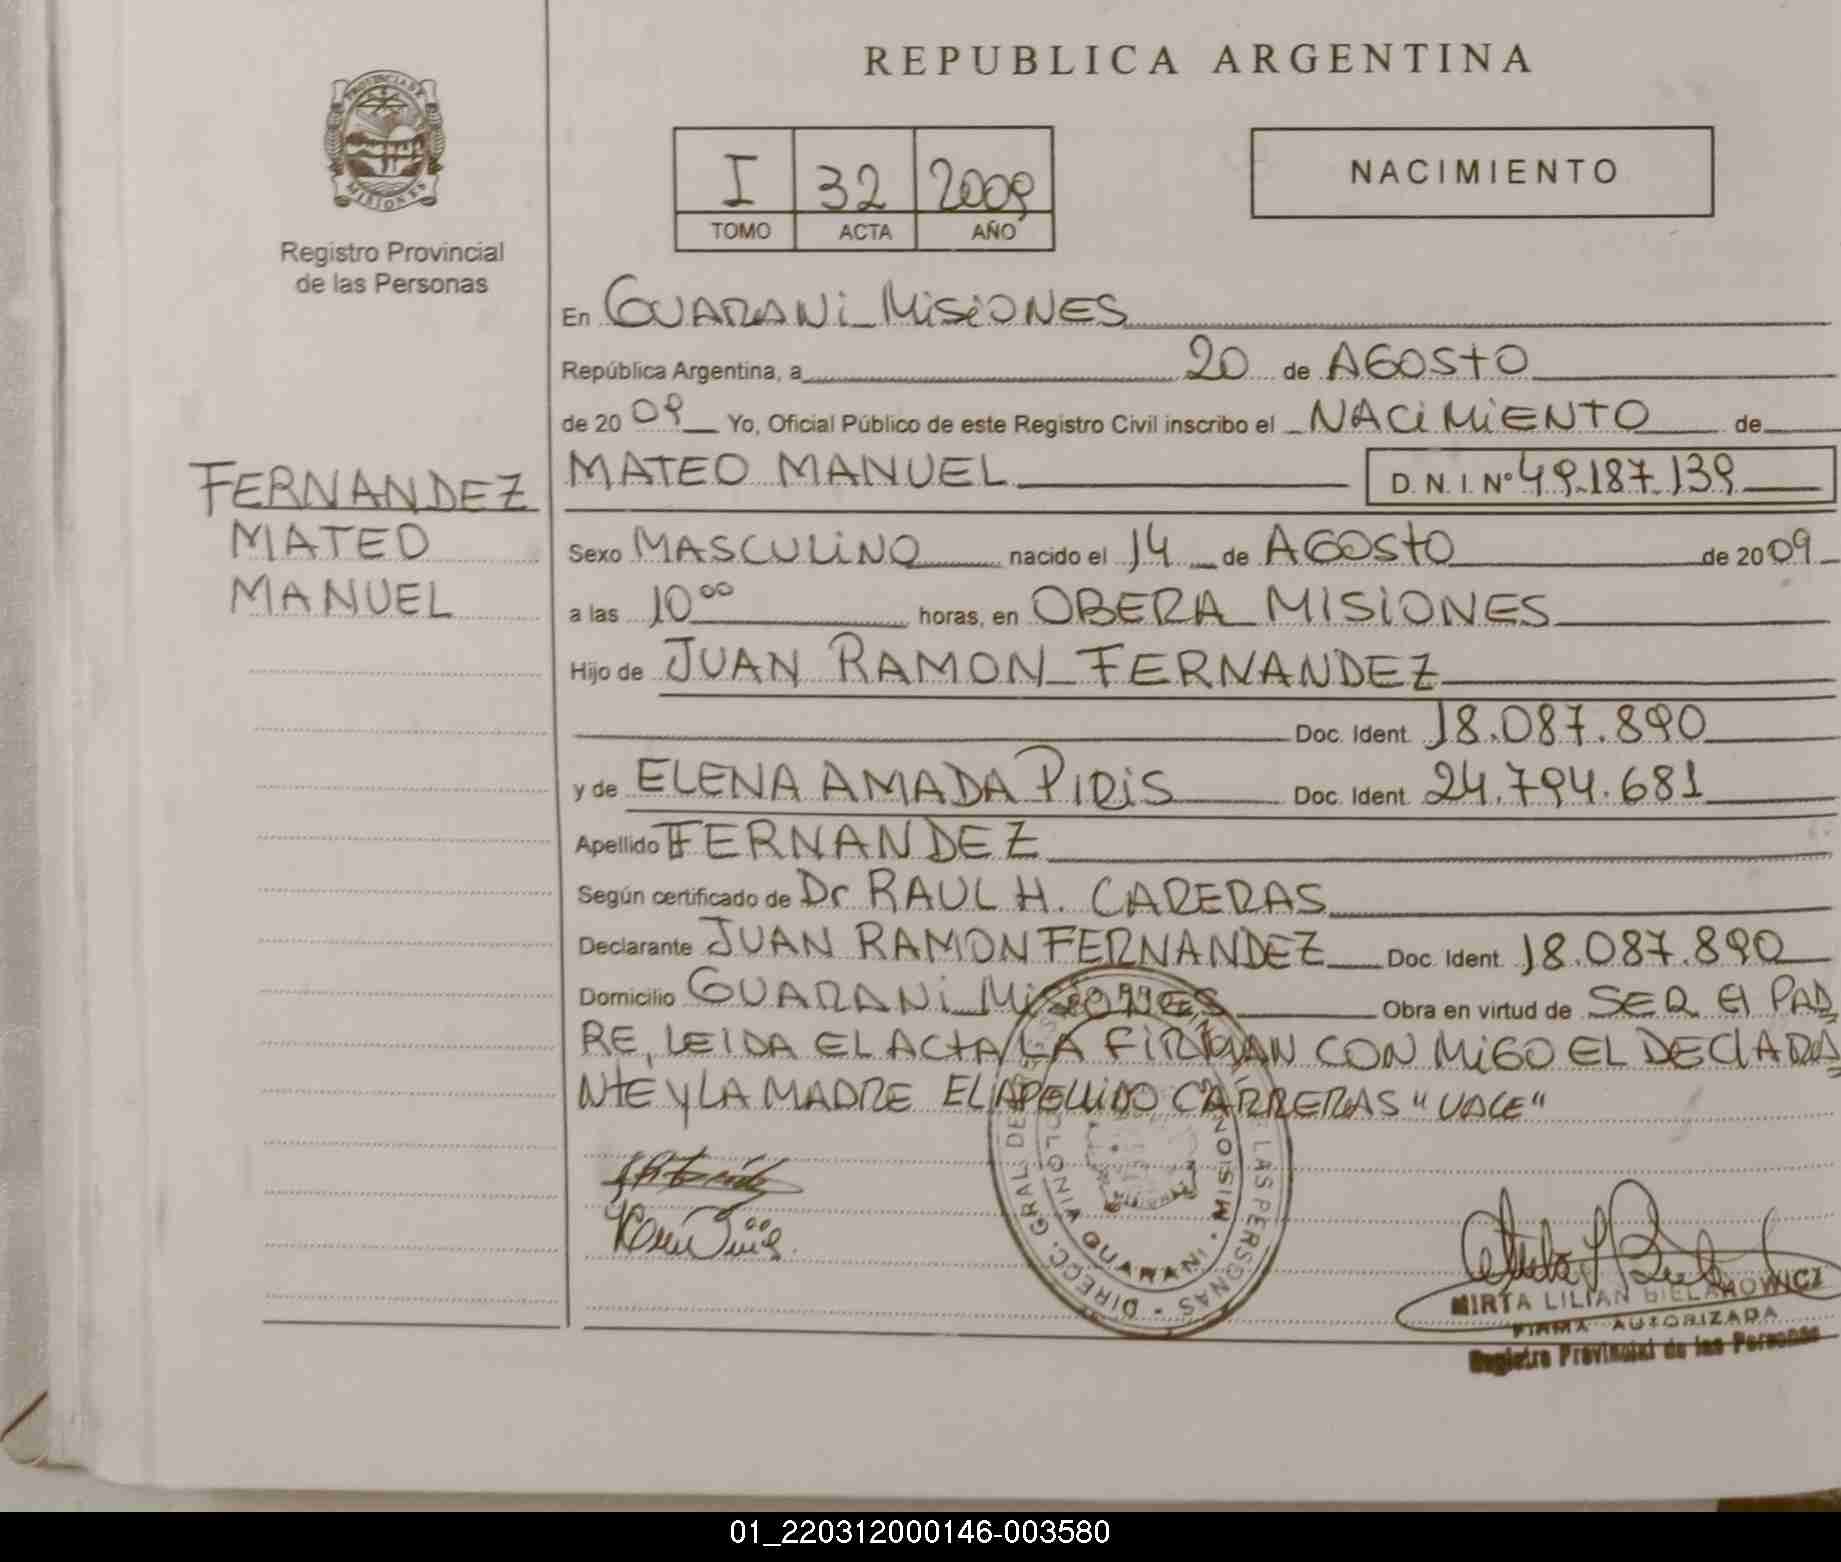 REPUBLICA ARGENTINA
PROVINCIA DE MISIONES
Registro Provincial
de las Personas
I 32 2009
TOMO ACTA AÑO
NACIMIENTO
En GUARANI MISIONES
República Argentina, a 20 de AGOSTO
de 2009 Yo, Oficial Público de este Registro Civil inscribo el NACIMIENTO de
FERNANDEZ
MATEO
MANUEL
MATEO MANUEL D.N.I. Nº 49.187.139
Sexo MASCULINO nacido el 14 de AGOSTO de 2009
a las 10 00 horas, en OBERA MISIONES
Hijo de JUAN RAMON FERNANDEZ
Doc. Ident. 18.087.890
y de ELENA AMADA PIRIS Doc. Ident. 24.794.681
Apellido FERNANDEZ
Según certificado de Dr RAUL H. CARERAS
Declarante JUAN RAMON FERNANDEZ Doc. Ident. 18.087.890
Domicilio GUARANI MISIONES Obra en virtud de SER El PAD
RE, LEIDA EL ACTA LA FIRMAN CON MIGO EL DEClARA
NTE Y LA MADRE EL APELLIDO CARRERAS "VALE"
DIRECC. GRAL. DE LAS PERSONAS
GUARANI MISIONES
MIRTA LILIAN BIELAKOWICZ
FIRMA AUTORIZADA
Registro Provincial de las Personas
01_220312000146-003580